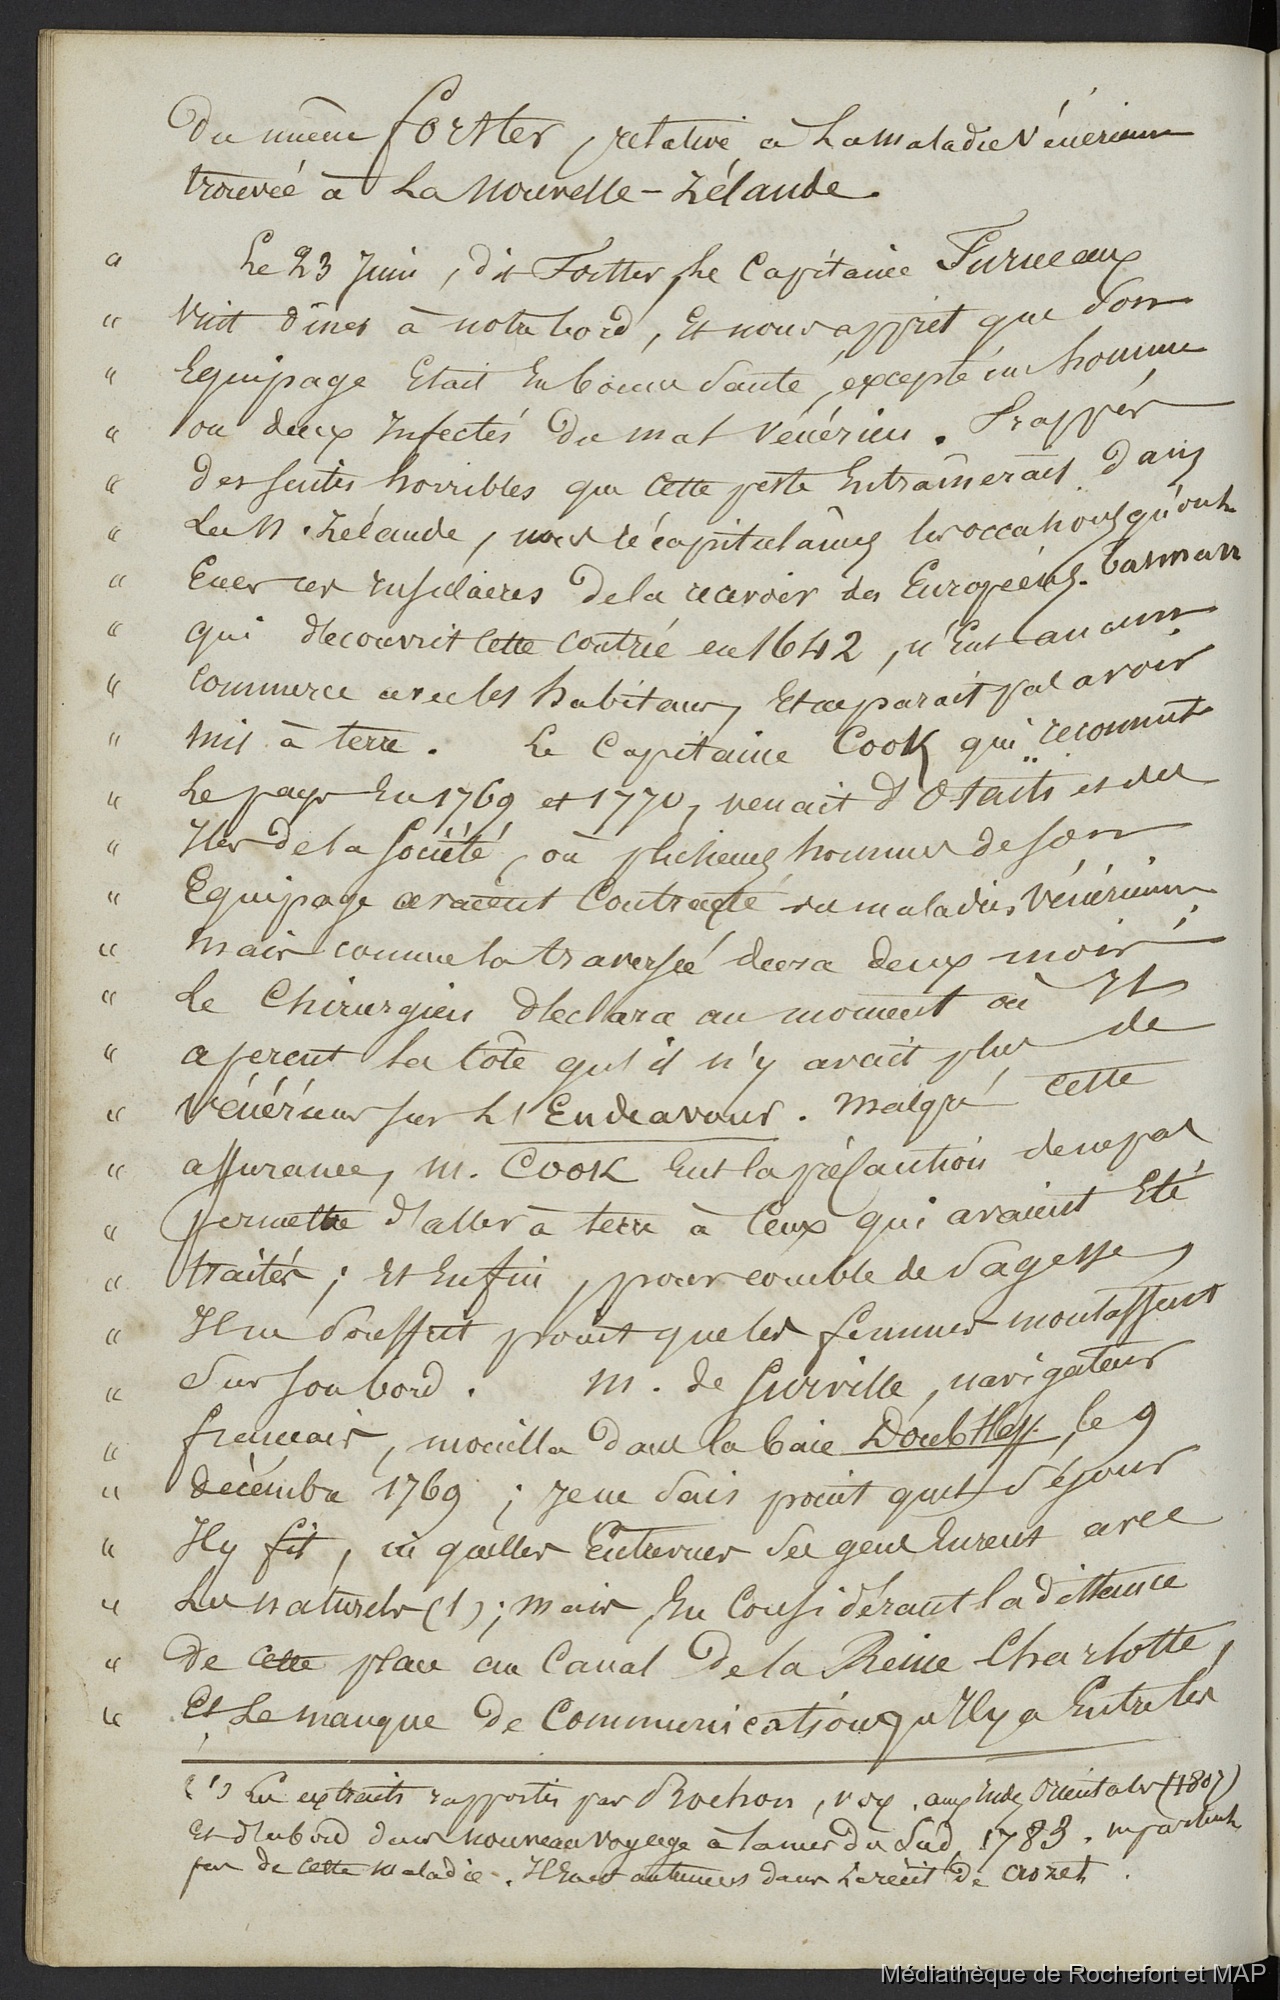 Du même forster, relative à la maladie vénérienne
trouvée à la nouvelle-Zélande.
" Le 23 Juin, dit Forster, le Capitaine Furneaux
" vint dîner à notre bord, et nous apprit que son
" Equipage Etait En bonne santé, excepté un homme
" ou deux Infectés du mal vénérien. Frappés
" des suites horribles que cette peste Entraînerait dans
" la N. Zélande, nous récapitulâmes les occasions qu'ont
" Eues ces insulaires de la recevoir des Européens. Tasman
" qui découvrit cette contrée en 1642, n'Eut aucun
" commerce avec les habitans, Et ne parait pas avoir
" mis à terre. Le Capitaine Cook qui reconnut
" Le pays En 1769 et 1770, venait d'Otaïti et des
" Iles de la Société, où plusieurs hommes de son
" Equipage avaient Contracté des maladies vénériennes
" mais comme la traversée dura deux mois,
" Le Chirurgien déclara au moment où Ils
" aperçut la Côte qu'il n'y avait plus de
" vénériens sur L'Endeavour. Malgré cette
" assurance, M. Cook Eut la précaution de ne pas
" permettre d'aller à terre à Ceux qui avaient Eté
" traités ; Et Enfin, pour comble de sagesse,
" Il ne souffrit point que les femmes montassent
" sur son bord. M. de Surville, navigateur
" français, mouilla dans la baie Doubtless, le 9
" décembre 1769 ; Je ne sais point quel séjour
" Il y fit, ni quelles Entrevues ses gens Eurent avec
" Les naturels (1) ; mais En Considérant la distance
" de cette place au Canal de la Reine Charlotte,
" Et Le manque de Communication qu'Il y a Entre les
(1) Les extraits rapportés par Rochon, voy. aux Indes Orientales (1807)
Et d'abord dans nouveau voyage à la mer du Sud, 1783. ne parlent
pas de cette maladie. Il en est autrement dans Le récit de Crozet.
Médiathèque de Rochefort et MAP